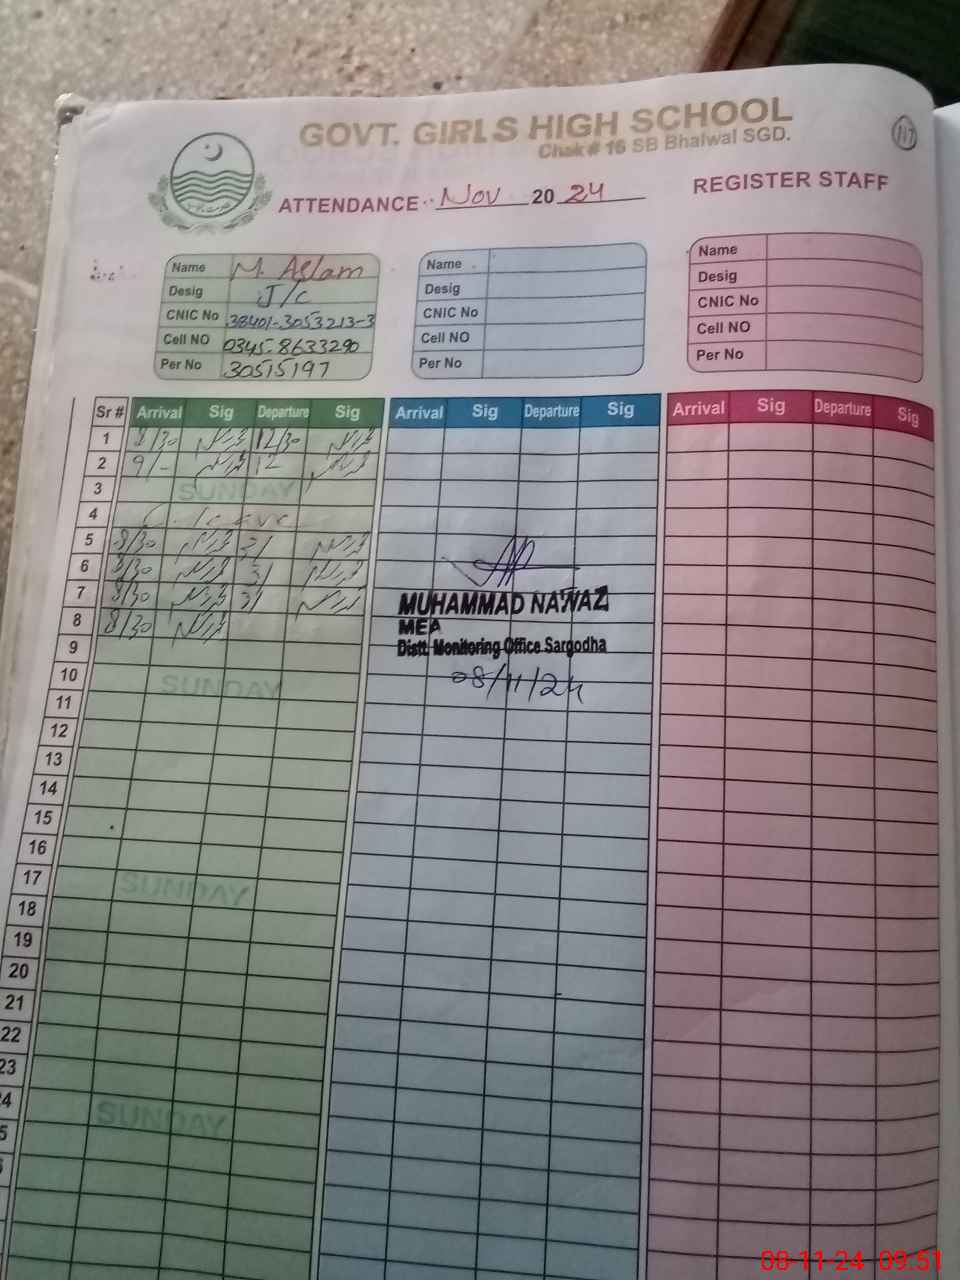 GOVT. GIRLS HIGH SCHOOL
Chak # 16 SB Bhalwal SGD.
117
ATTENDANCE Nov 2024 REGISTER STAFF
Name M. Aslam
Desig J/C
CNIC No 38401-3053213-3
Cell NO 0345-8633290
Per No 30515197
Name
Desig
CNIC No
Cell NO
Per No
Name
Desig
CNIC No
Cell NO
Per No
Sr # Arrival Sig Departure Sig Arrival Sig Departure Sig Arrival Sig Departure Sig
1 8/30 12/30
2 9/- 12
3 SUNDAY
4 leave
5 8/30 3/
6 8/30 3/
7 8/30 3/
8 8/30
MUHAMMAD NAWAZ
MEA
Distt Monitoring Office Sargodha
08/11/24
9
10 SUNDAY
11
12
13
14
15
16
17 SUNDAY
18
19
20
21
22
23
4 SUNDAY
5
08-11-24 09:51